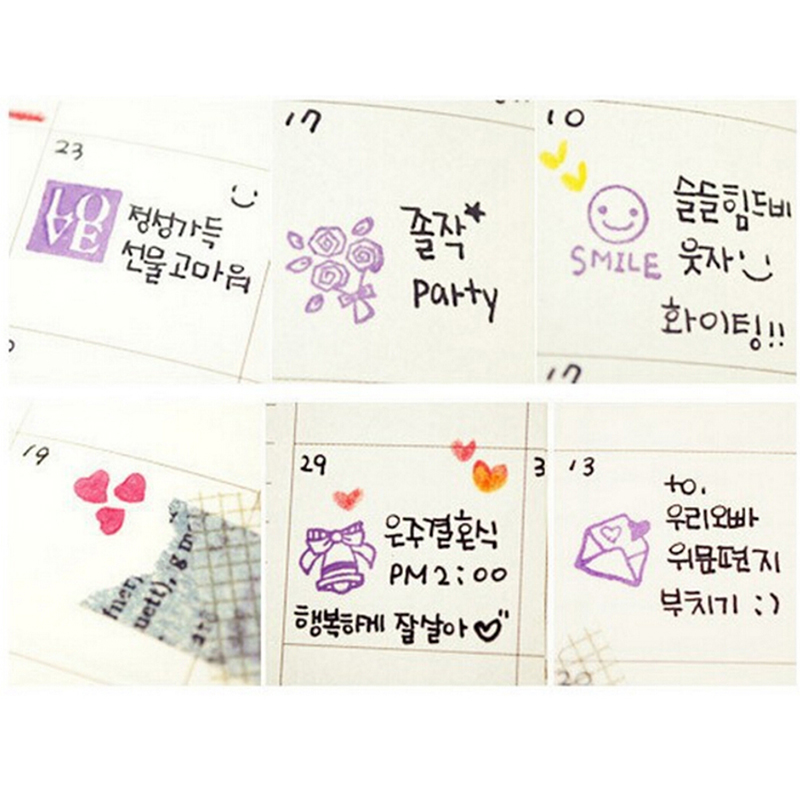 23
LO
VE
정성가득
선물고마워
17
졸작
party
10
SMILE
슬슬힘드비
웃자
화이팅!!
17
19
fner,
uett), g m
29
3
은주결혼식
PM 2:00
행복하게 잘살아
13
to.
우리오빠
위문편지
부치기 :)
20